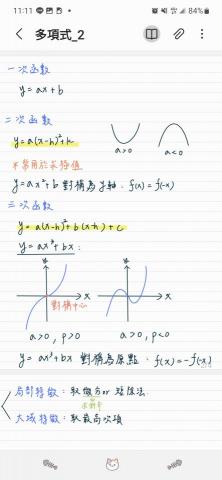 11:11
84%
多項式_2
一次函數
y=ax+b
二次函數
y=a(x-h)²+k
a>0
a<0
*常用於求極值
y=ax²+b 對稱為y軸. f(x)=f(-x)
三次函數
y=a(x-h)³+b(x-h)+c
y=ax³+bx:
y
y
x
x
對稱中心
a>0, p>0
a>0, p<0
y=ax³+bx 對稱為原點: f(x)=-f(-x)
局部特徵: 取微方or 除法.
大域特徵: 取最高次項